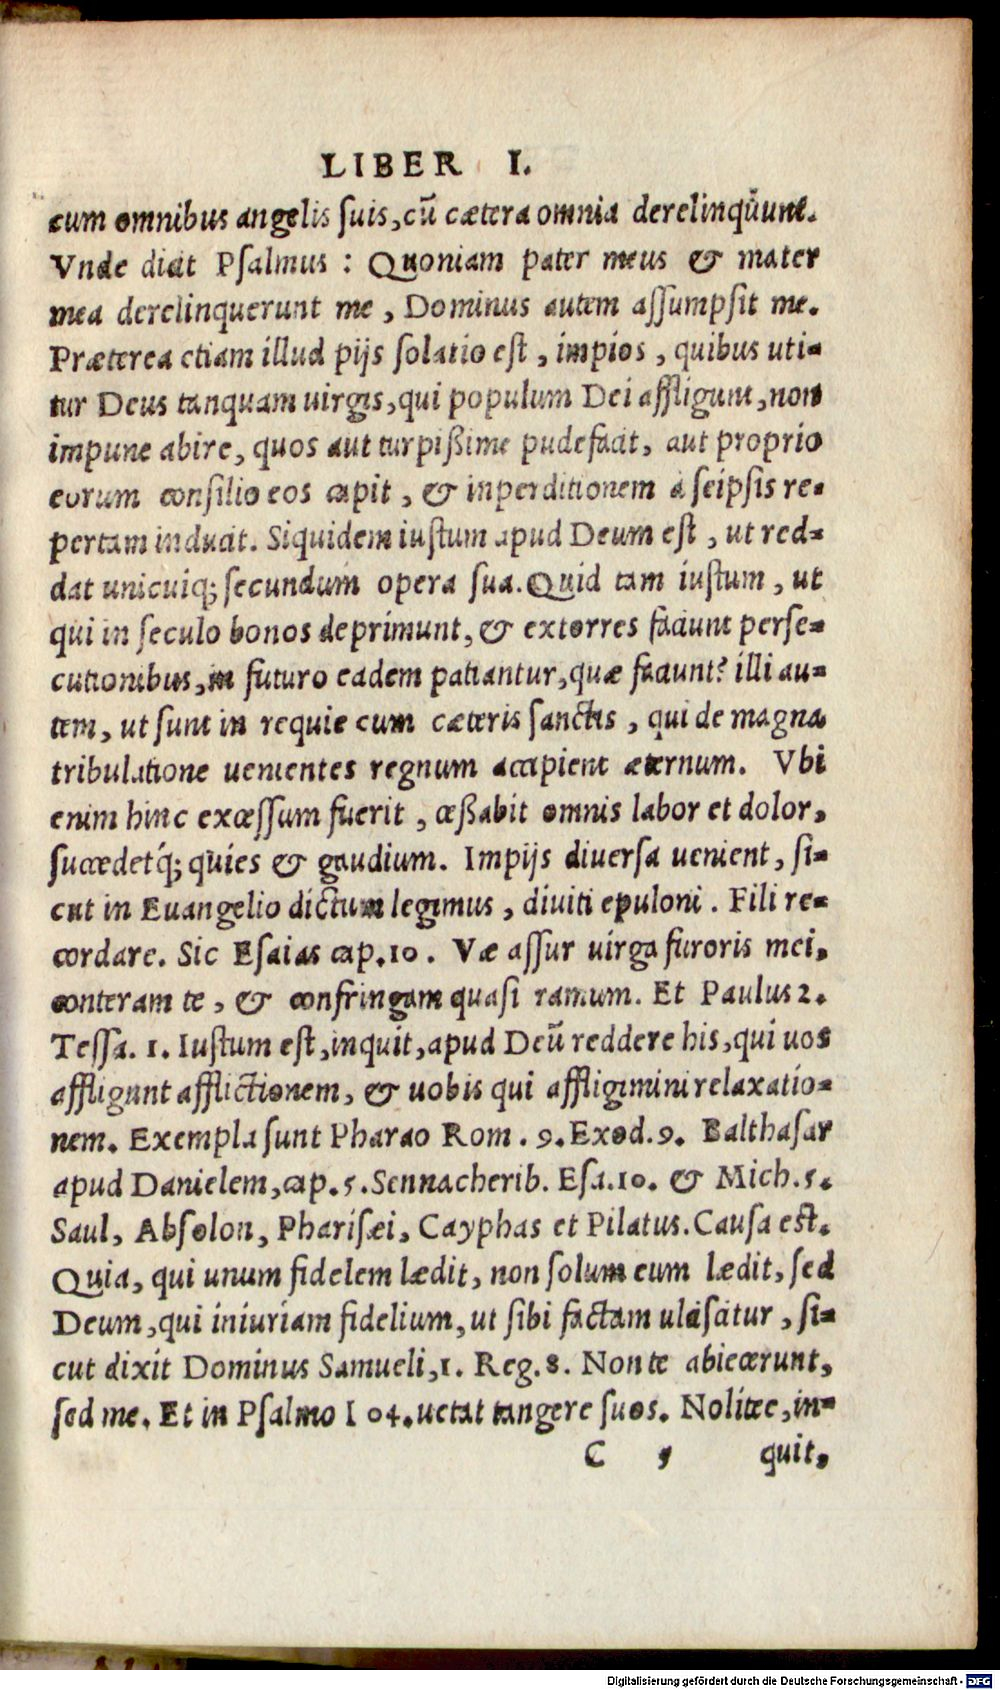 LIBER I.
cum omnibus angelis suis, cũ cætera omnia derelinqũunt.
Vnde dicit Psalmus : Quoniam pater meus & mater
mea derelinquerunt me , Dominus autem assumpsit me.
Præterea etiam illud pijs solatio est , impios , quibus uti=
tur Deus tanquam uirgis, qui populum Dei affligunt, non
impune abire, quos aut turpißime pudefacit, aut proprio
eorum consilio eos capit , & in perditionem à seipsis re=
pertam inducit. Siquidem iustum apud Deum est , ut red=
dat unicuiq; secundum opera sua. Quid tam iustum , ut
qui in seculo bonos deprimunt, & extorres faciunt perse=
cutionibus, in futuro eadem patiantur, quæ faciunt? illi au=
tem, ut sunt in requie cum cæteris sanctis , qui de magna
tribulatione uenientes regnum accipient æternum. Vbi
enim hinc excessum fuerit , ceßabit omnis labor et dolor,
succedetq́; quies & gaudium. Impijs diuersa uenient, si=
cut in Euangelio dictum legimus , diuiti epuloni . Fili re=
cordare. Sic Esaias cap.10 . Væ assur uirga furoris mei,
conteram te , & confringam quasi ramum. Et Paulus 2.
Tessa. 1. Iustum est, inquit, apud Deũ reddere his, qui uos
affligunt afflictionem, & uobis qui affligimini relaxatio=
nem. Exempla sunt Pharao Rom . 9. Exod. 9. Balthasar
apud Danielem, cap. 5. Sennacherib. Esa. 10. & Mich. 5.
Saul, Absolon, Pharisæi, Cayphas et Pilatus. Causa est.
Quia, qui unum fidelem lædit, non solum eum lædit, sed
Deum, qui iniuriam fidelium, ut sibi factam ulciscatur , si=
cut dixit Dominus Samueli, 1. Reg. 8. Non te abiecerunt,
sed me. Et in Psalmo 104. uetat tangere suos. Nolite, in=
C 5 quit,
Digitalisierung gefördert durch die Deutsche Forschungsgemeinschaft - DFG